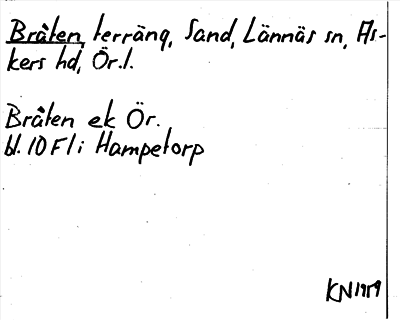 Bråten, terräng, Sand, Lännäs sn, As-
kers hd, Ör.l.
Bråten ek Ör.
bl. 10 F1i Hampetorp
KN 1959